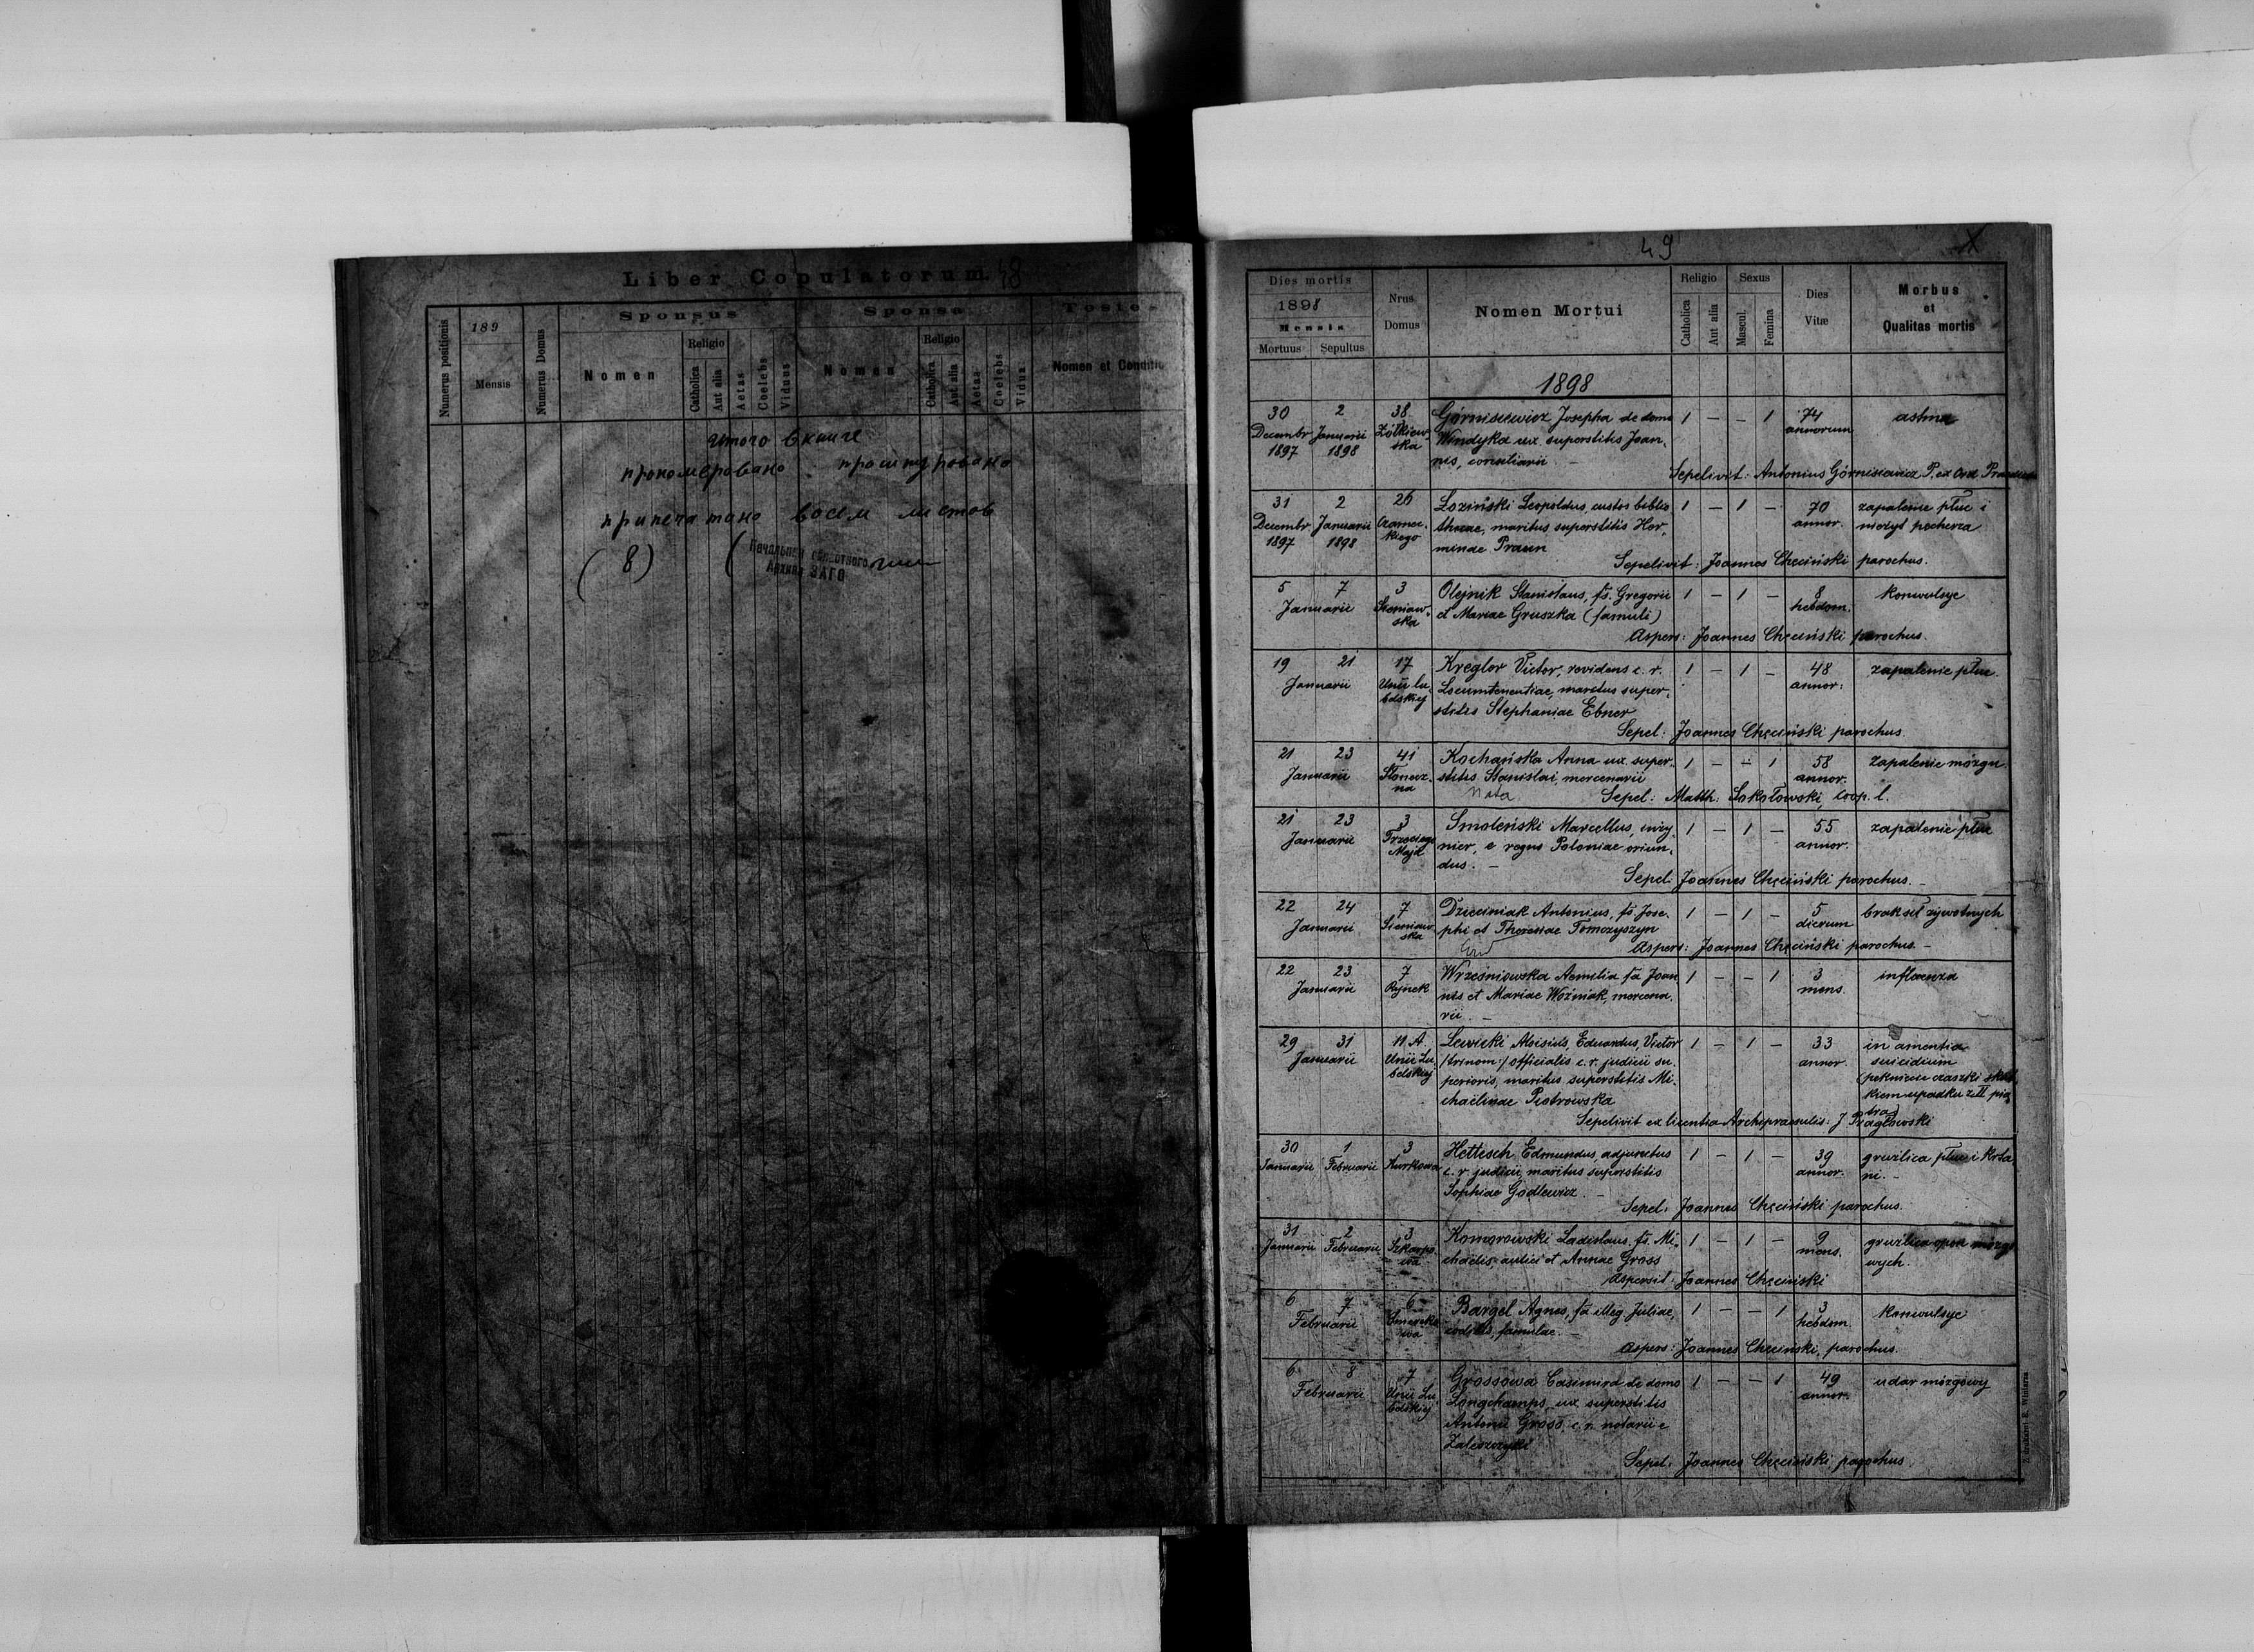 Liber Copulatorum. 48
Numerus positionis
189
Mensis
Numerus Domus
Sponsus
Nomen
Religio
Catholica
Aut alia
Aetas
Coelebs
Viduus
Sponsa
Nomen
Religio
Catholica
Aut alia
Aetas
Coelebs
Vidua
Testes
Nomen et Conditio
итого в книге
прономеровано прошнуровано
припечатано восем листов
(8)
Начальник областного
Архива ЗАГС
49
X
Dies mortis
1898
Mensis
Mortuus Sepultus
Nrus
Domus
Nomen Mortui
Religio
Catholica
Aut alia
Sexus
Mascul.
Femina
Dies
Vitæ
Morbus
et
Qualitas mortis
1898
30 2 38 Górnisiewicz Josepha de domo 1 – – 1 74 astma
Decembr Januarii Żółkiew- Windyka ux. superstitis Joan- annorum
1897 1898 ska nis, consiliarii
Sepelivit: Antonius Górnisiewicz P. ex Ord.
31 2 26 Łoziński Leopoldus, custos biblio 1 – 1 – 70 zapalenie płuc i
Decembr Januarii Czarnec- thecae, maritus superstitis Her- annor. nieżyt pęcherza
1897 1898 kiego minae Praun
Sepelivit: Joannes Chęciński parochus.
5 7 3 Olejnik Stanislaus, fs. Gregorii 1 – 1 – 8 konwulsye
Januarii Sieniaw- et Mariae Gruszka (famuli) hebdom.
ska
Aspers: Joannes Chęciński parochus.
19 21 17 Kregler Victor, revidens c. r. 1 – 1 – 48 zapalenie płuc
Januarii Unii lu- Locumtenentiae, maritus super- annor:
belskiej stitis Stephaniae Ebner
Sepel: Joannes Chęciński parochus.
21 23 41 Kochańska Anna ux. super- 1 – – 1 58 zapalenie mózgu
Januarii Słonecz- stitis Stanislai, mercenarii annor.
na nata Sepel: Matth: Sokołowski, coop. l.
21 23 3 Smoleński Marcellus, inży- 1 – 1 – 55 zapalenie płuc
Januarii Trzeciego nier, e regno Poloniae oriun- annor.
Maja dus. –
Sepel: Joannes Chęciński parochus. –
22 24 7 Dzieciniak Antonius, fs. Jose- 1 – 1 – 5 brak sił żywotnych
Januarii Sieniaw- phi et Theresiae Tomczyszyn dierum
ska Aspers: Joannes Chęciński parochus. –
22 23 7 Wrześniowska Aemilia fa Joan 1 – – 1 3 influenza
Januarii Rynek nis et Mariae Woźniak, mercena- mens.
rii. –
29 31 11 A. Lewicki Aloisius, Eduardus, Victor 1 – 1 – 33 in amentia
Januarii Unii Lu- /trinom:/ officialis c. r. judicii su- annor. suicidium
belskiej perioris, maritus superstitis Mi- (pęknięcie czaszki skut-
chaëlinae Piotrowska kiem upadku z II pię-
tra)
Sepelivit ex licentia Archipraesulis: J
30 1 3 Hettesch Edmundus, adjunctus 1 – 1 – 39 gruźlica płuc i krta-
Januarii Februarii Kurkowa c. r. judicii, maritus superstitis annor. ni. –
Sophiae Godlewicz. –
Sepel: Joannes Chęciński parochus.
31 2 3 Komorowski Ladislaus, fs. Mi- 1 – 1 – 9 gruźlica opon mózgo
Januarii Februarii Szkarpo- chaëlis et Annae Gross mens. wych.
wa
Aspersit: Joannes Chęciński
6 7 6 Bargel Agnes, fa illeg. Juliae, 1 – – 1 3 konwulsye
Februarii Smereko famulae. – hebdom.
wa
Aspers: Joannes Chęciński, parochus.
6 8 7 Grossowa Casimira de domo 1 – – 1 49 udar mózgowy
Februarii Unii Lu- Longchamps, ux. superstitis annor.
belskiej Antonii Gross, c. r. notarii e
Zaleszczyki
Sepel: Joannes Chęciński parochus.
Z drukarni E. Winiarza